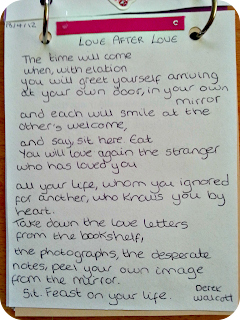 13/4/12
C
LOVE AFTER LOVE
The time will come
when, with elation
You will greet yourself arriving
at your own door, in your own
mirror
and each will smile at the
other's welcome,
and say, sit here. Eat
You will love again the stranger
who has loved you
all your life, whom you ignored
for another, who knows you by
heart.
Take down the love letters
from the bookshelf,
the photographs, the desperate
notes, peel your own image
from the mirror.
Sit. Feast on your life.
Derek
Walcott